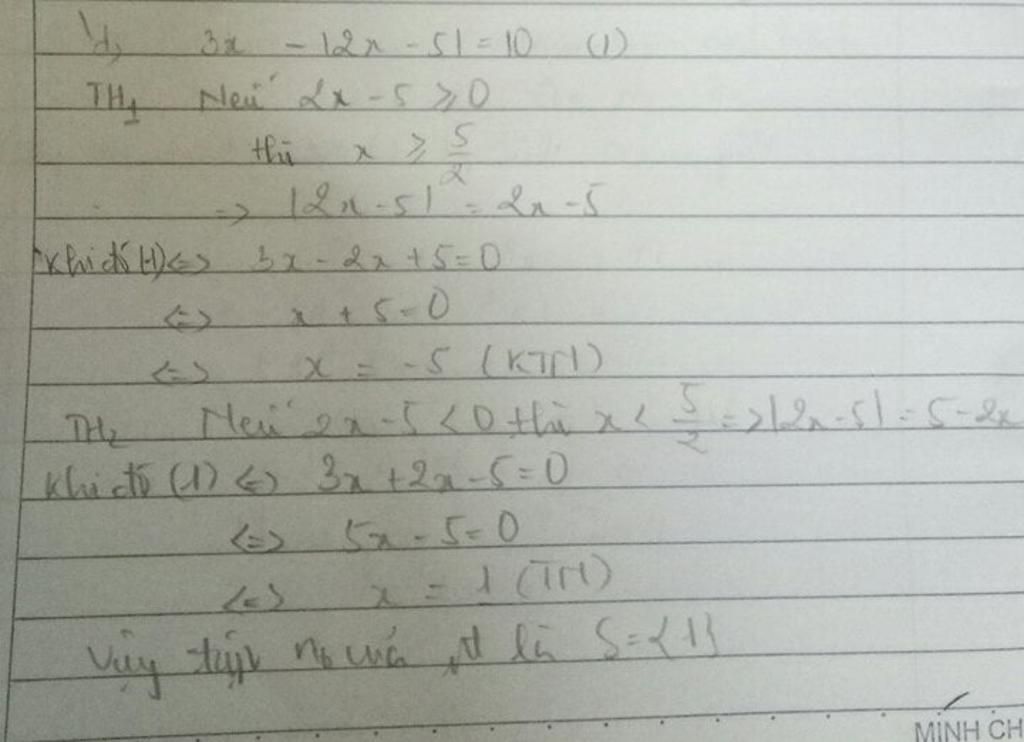 1d, 3x - |2x - 5| = 10 (1)
TH1 Nếu 2x - 5 ≥ 0
thì x ≥ 5/2
=> |2x - 5| = 2x - 5
Khi đó (1) <=> 3x - 2x + 5 = 0
<=> x + 5 = 0
<=> x = -5 (KTM)
TH2 Nếu 2x - 5 < 0 thì x < 5/2 => |2x - 5| = 5 - 2x
Khi đó (1) <=> 3x + 2x - 5 = 0
<=> 5x - 5 = 0
<=> x = 1 (TM)
Vậy tập no của pt là S = {1}
MINH CH